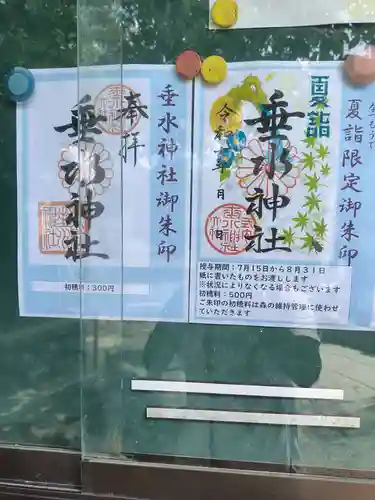 垂水神社御朱印
奉拝
垂水神社
初穂料：300円
夏詣限定御朱印
夏詣
垂水神社
令和
年
月
日
授与期間：7月15日から8月31日
紙に書いたものをお渡しします
※状況によりなくなる場合もございます
初穂料：500円
ご朱印の初穂料は森の維持管理に使わせ
ていただきます